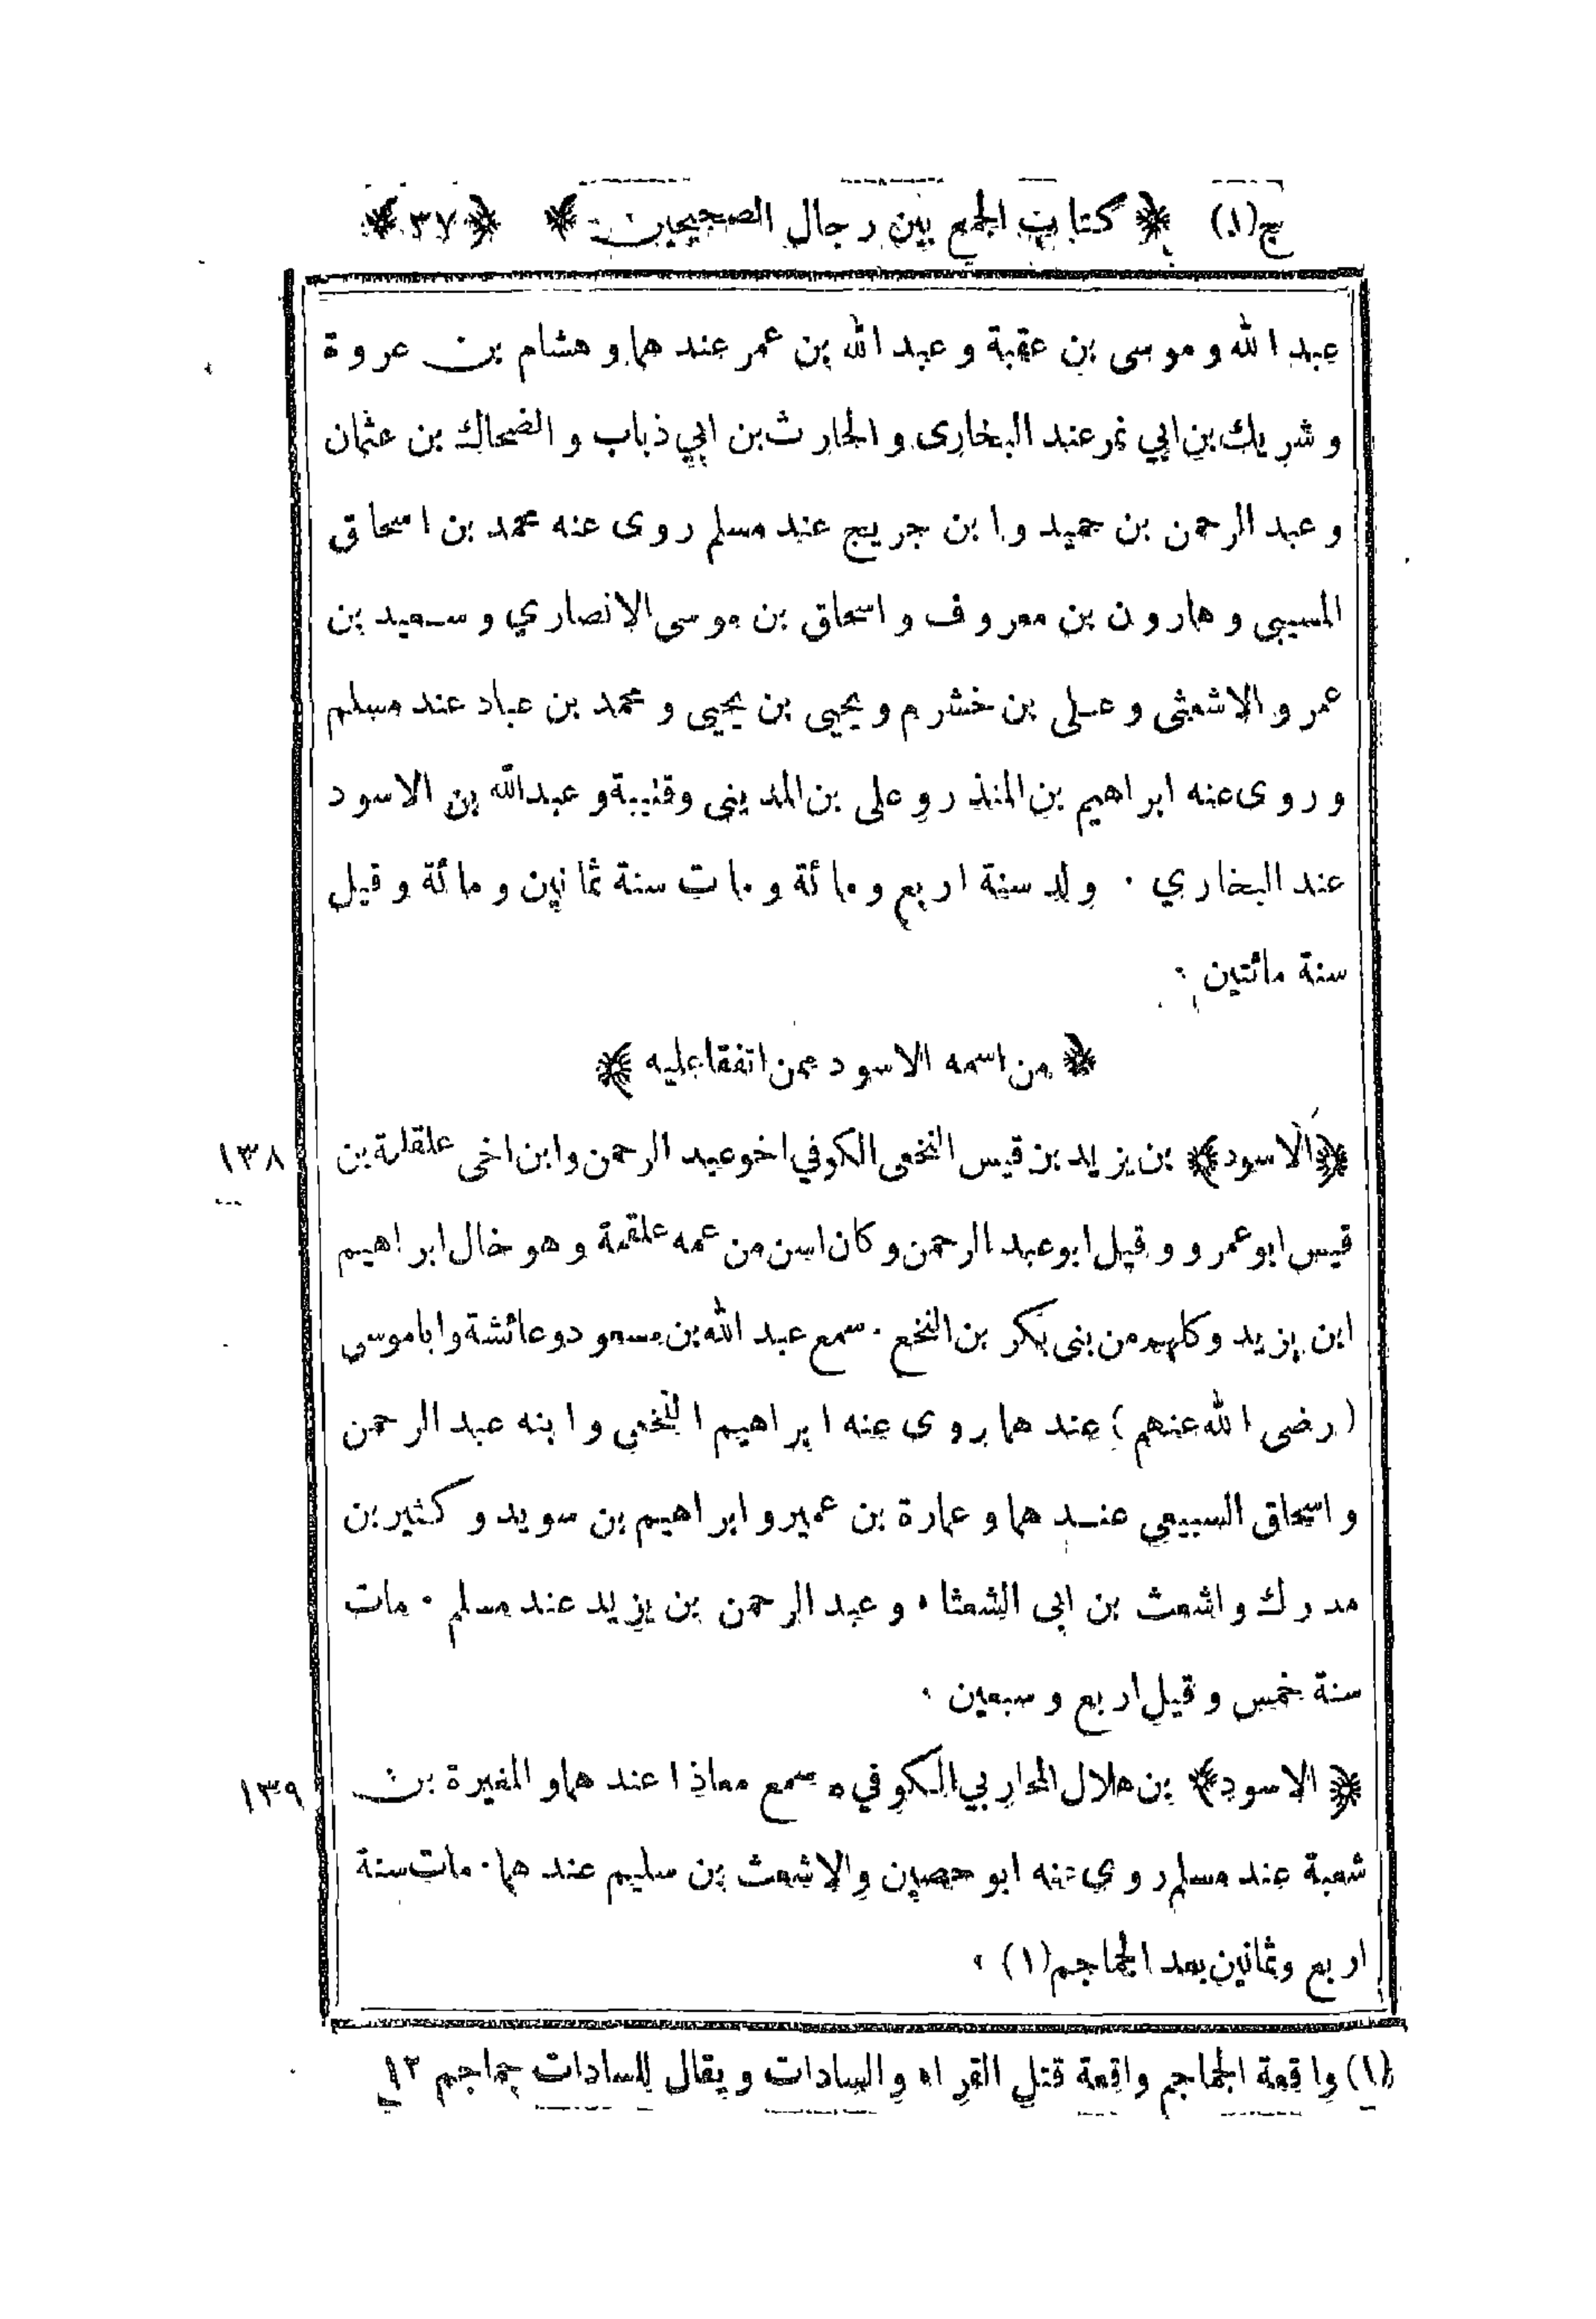 ج(١) ﴿ كتاب الجمع بين رجال الصحيحين ﴾ ﴿٣٧﴾
عبد الله وموسى بن عقبة وعبد الله بن عمر عندهما وهشام بن عروة
وشريك بن ابي نمر عند البخارى والحارث بن ابي ذباب والضحاك بن عثمان
وعبد الرحمن بن حميد وابن جريج عند مسلم روى عنه محمد بن اسحاق
المسيبى وهارون بن معروف واسحاق بن موسى الانصاري وسعيد بن
عمرو الاشعثى وعلى بن خشرم ويحيى بن يحيى ومحمد بن عباد عند مسلم
وروى عنه ابراهيم بن المنذر وعلى بن المدينى وقتيبة وعبد الله بن الاسود
عند البخاري ٠ ولد سنة اربع ومائة ومات سنة ثمانين ومائة وقيل
سنة مائتين ٠
﴿ من اسمه الاسود ممن اتفقا عليه ﴾
﴿الاسود﴾ بن يزيد بن قيس النخعى الكوفي اخو عبد الرحمن وابن اخى علقمة بن ١٣٨
قيس ابو عمرو وقيل ابو عبد الرحمن وكان اسن من عمه علقمة وهو خال ابراهيم
ابن يزيد وكلهم من بنى بكر بن النخع ٠ سمع عبد الله بن مسعود وعائشة وابا موسى
(رضى الله عنهم) عندهما روى عنه ابراهيم النخعي وابنه عبد الرحمن
واسحاق السبيعي عندهما وعمارة بن عمير وابراهيم بن سويد وكثير بن
مدرك واشعث بن ابى الشعثاء وعبد الرحمن بن يزيد عند مسلم ٠ مات
سنة خمس وقيل اربع وسبعين ٠
﴿ الاسود﴾ بن هلال المحاربي الكوفي ٠ سمع معاذا عندهما والمغيرة بن ١٣٩
شعبة عند مسلم روى عنه ابو حصين والاشعث بن سليم عندهما ٠ مات سنة
اربع وثمانين بعد الجماجم (١) ٠
(١) واقعة الجماجم واقعة قتل القراء والسادات ويقال للسادات جماجم ١٢